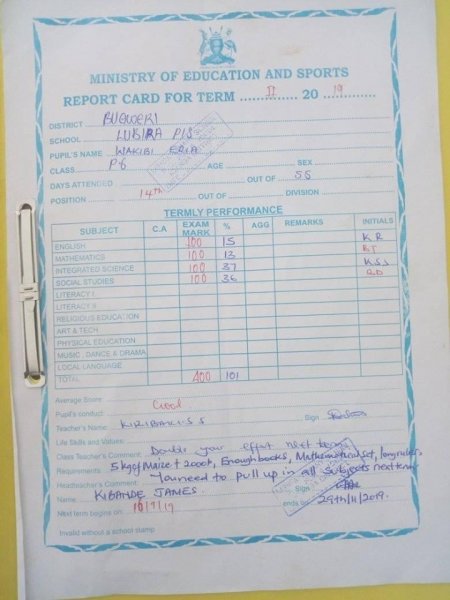 MINISTRY OF EDUCATION AND SPORTS
REPORT CARD FOR TERM II 20 19
DISTRICT BUGWERI
SCHOOL LUBIRA P/S
PUPIL'S NAME WAKIBI ERIA
CLASS P.6 AGE SEX
DAYS ATTENDED OUT OF 55
POSITION 14th OUT OF DIVISION
TERMLY PERFORMANCE
SUBJECT C.A EXAM MARK % AGG REMARKS INITIALS
ENGLISH 100 15 K.R
MATHEMATICS 100 13
INTEGRATED SCIENCE 100 37 K.S.S
SOCIAL STUDIES 100 36
LITERACY I
LITERACY II
RELIGIOUS EDUCATION
ART & TECH
PHYSICAL EDUCATION
MUSIC, DANCE & DRAMA
LOCAL LANGUAGE
TOTAL 400 101
Average Score
Pupil's conduct: Good
Teacher's Name: Sign
Life Skills and Values:
Class Teacher's Comment: Double your effort next term
Requirements 5kg of Maize + 2000/=, Enough books, Mathematical set, long rulers
Headteacher's Comment: You need to pull up in all subjects next term
Name KIGANDE JAMES Sign
Next term begins on ends on 29th/11/2019.
Invalid without a school stamp